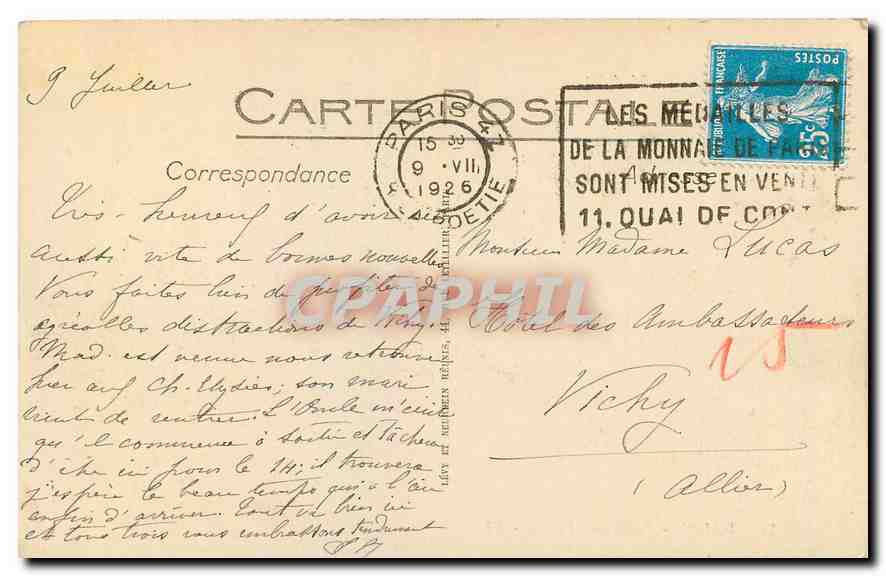 9 Juillet
CARTE POSTALE
Correspondance
Adresse
PARIS 47
15 30
9 · VII
1926
R. LA BOETIE
LES MÉDAILLES
DE LA MONNAIE DE PARIS
SONT MISES EN VENTE
11. QUAI DE CONTI
POSTES
RÉPUBLIQUE FRANÇAISE
25c
Très-heureux d'avoir eu
aussi vite de bonnes nouvelles
Vous faites bien de profiter des
agréables distractions de Vichy.
Mad. est venue nous retrouver
hier aux Ch. Elysées; son mari
vient de rentrer. L'Oncle m'écrit
qu'il commence à sortir et tâchera
d'être ici pour le 14; il trouvera
j'espère le beau temps qui a l'air
enfin d'arriver. Tout va bien ici
et tous trois vous embrassons tendrement
LÉVY ET NEURDEIN RÉUNIS, 44, LETELLIER, PARIS
Monsieur Madame Lucas
Hôtel des Ambassadeurs
15
Vichy
(Allier)
CPAPHIL